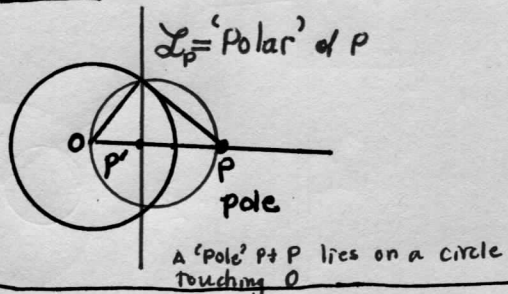 ℒₚ = 'Polar' of P
O
P'
P
pole
A 'Pole' Pt P lies on a circle
touching O